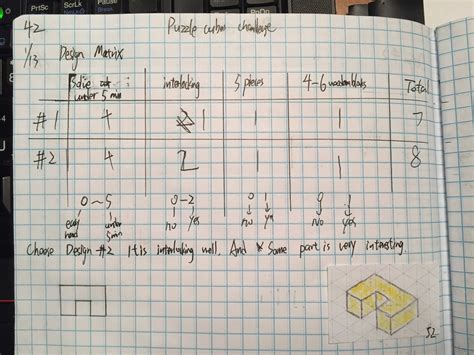 PrtSc ScrLk Pause
42
Puzzle cube challenge
1/13 Design Matrix
Solve at interlocking 5 pieces 4-6 wooden blocks Total
under 5 min
#1 4 1 1 1 7
#2 4 2 1 1 8
0~5 0-2 0 1 0 1
easy under no yes no yes no yes
hard 5min
Choose Design #2 It is interlocking well. And Some part is very interesting.
52